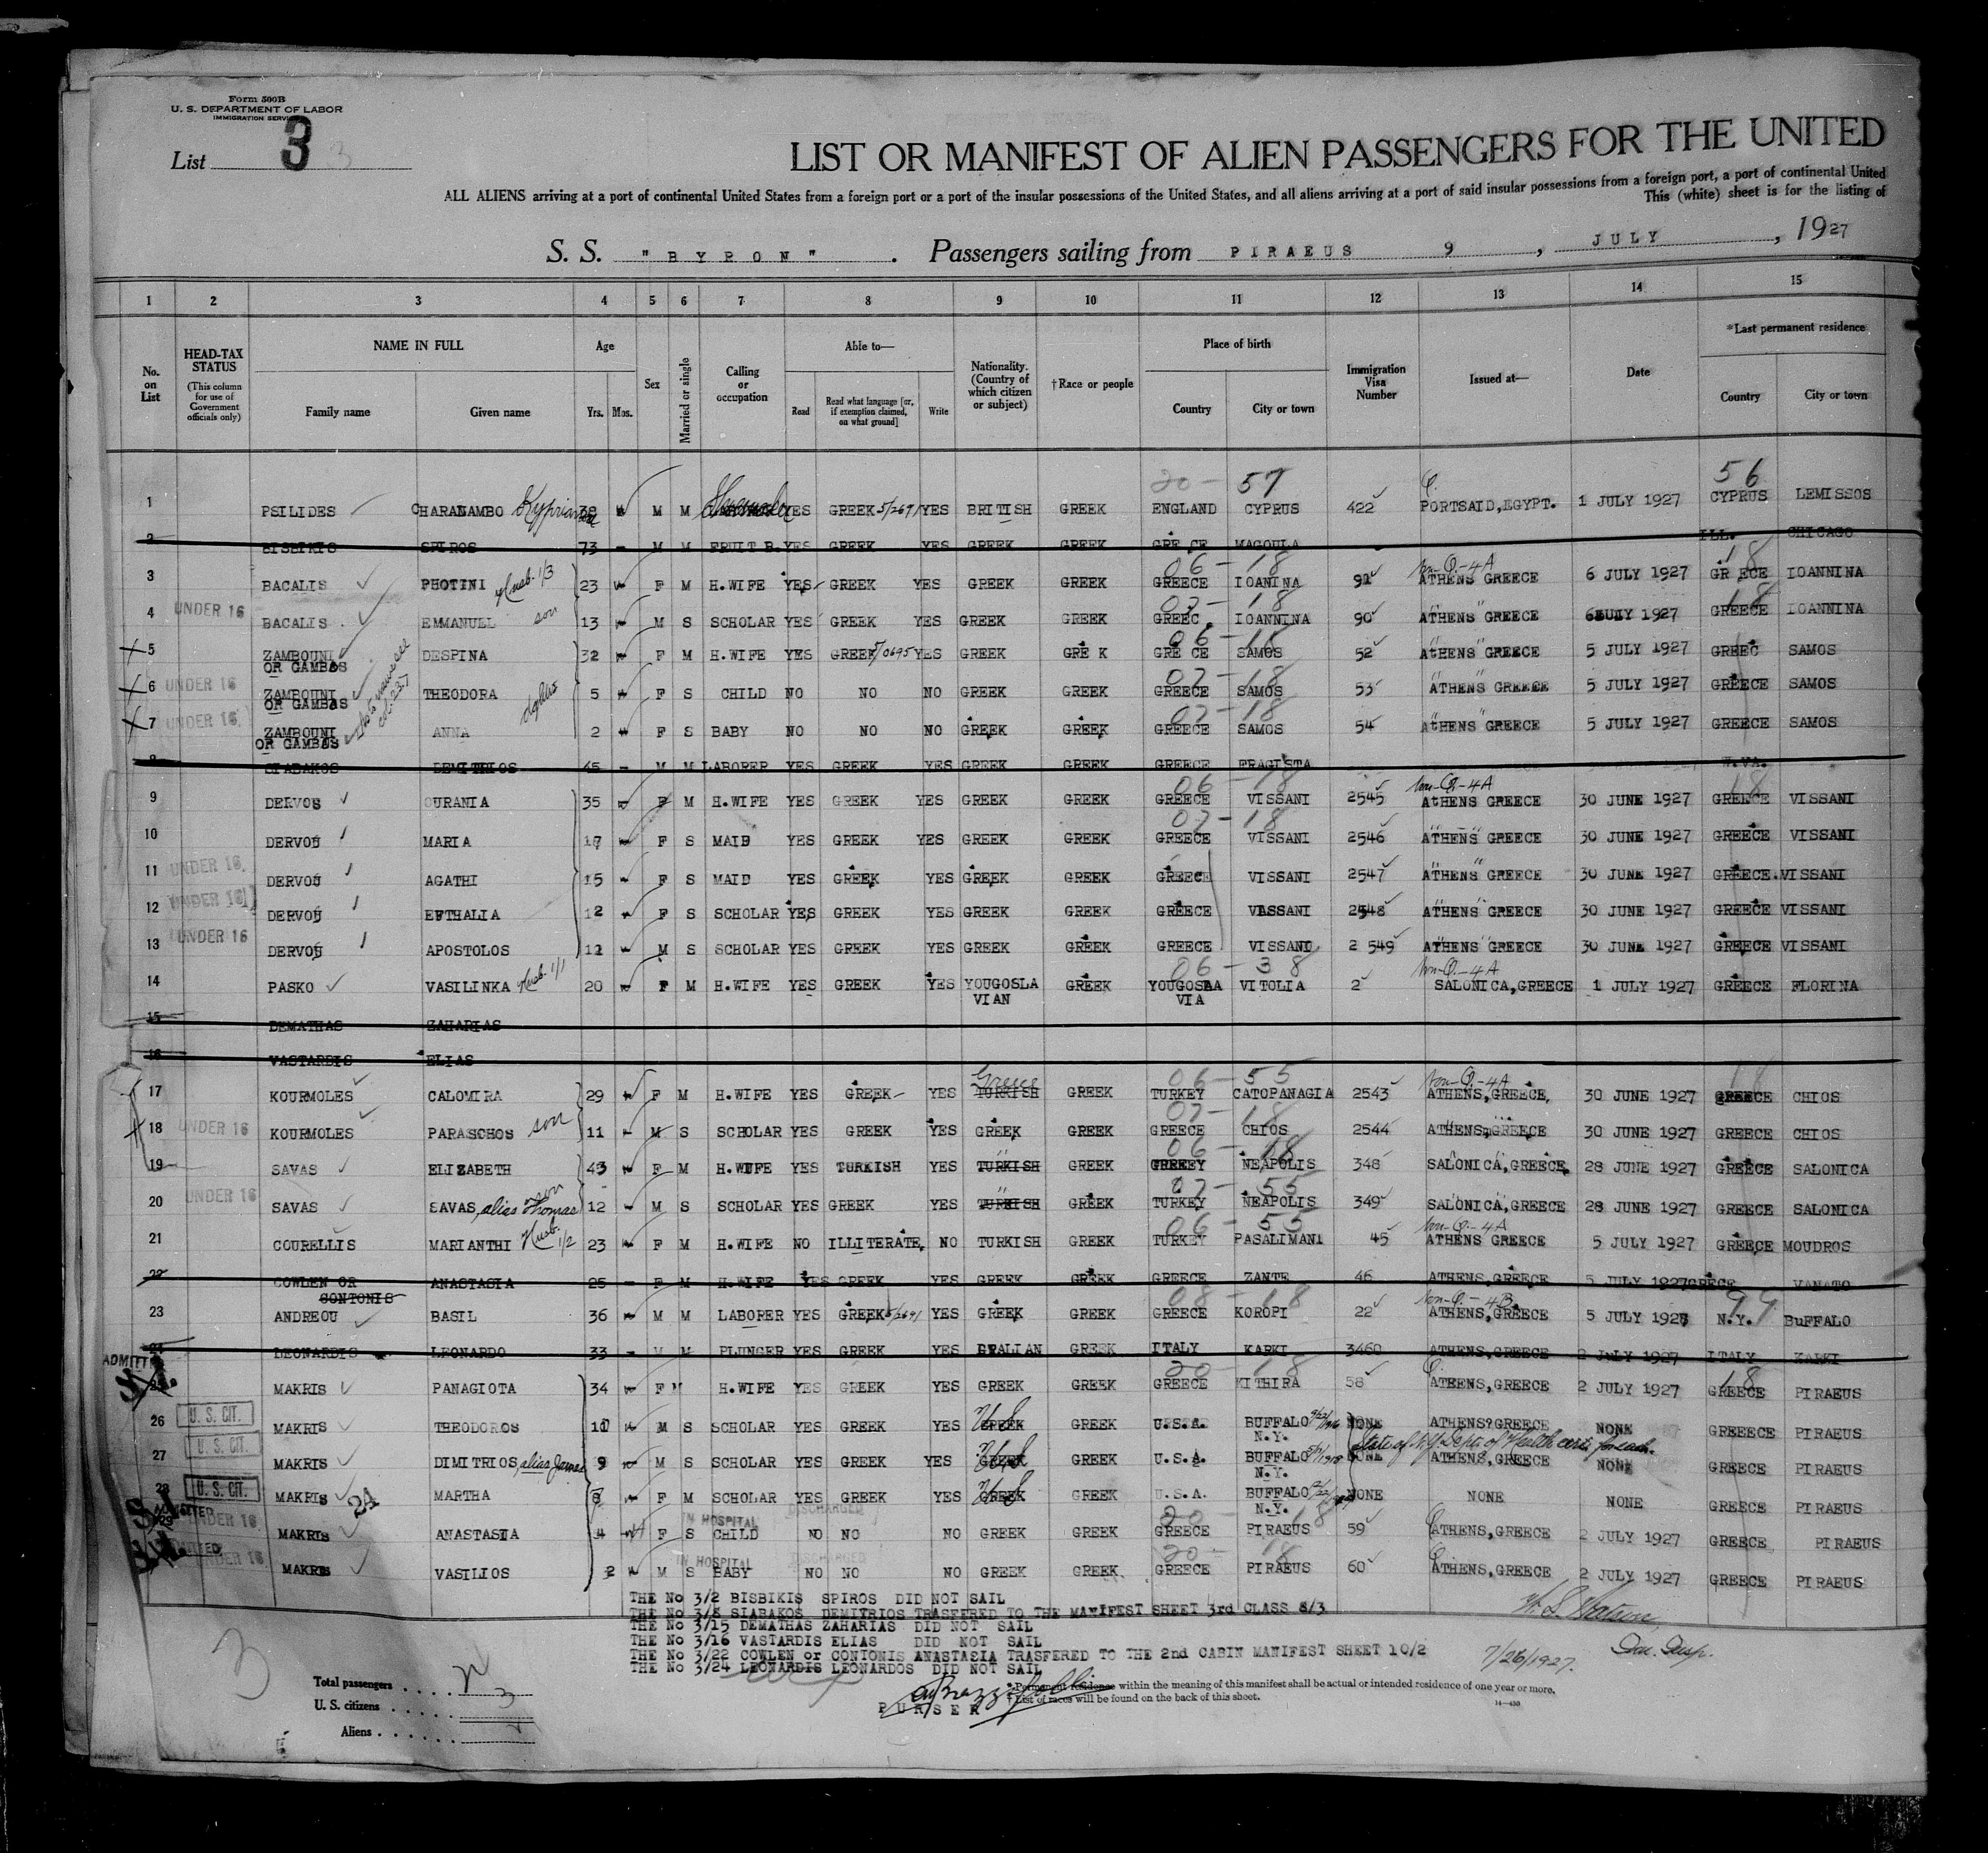 Form 500B
U. S. DEPARTMENT OF LABOR
IMMIGRATION SERVICE
List 3 3
LIST OR MANIFEST OF ALIEN PASSENGERS FOR THE UNITED
ALL ALIENS arriving at a port of continental United States from a foreign port or a port of the insular possessions of the United States, and all aliens arriving at a port of said insular possessions from a foreign port, a port of continental United
This (white) sheet is for the listing of
S. S. "BYRON". Passengers sailing from PIRAEUS 9, JULY, 1927
1 2 3 4 5 6 7 8 9 10 11 12 13 14 15
No. on List HEAD-TAX STATUS (This column for use of Government officials only) NAME IN FULL Family name Given name Age Yrs. Mos. Sex Married or single Calling or occupation Able to— Read Read what language [or, if exemption claimed, on what ground] Write Nationality. (Country of which citizen or subject) †Race or people Place of birth Country City or town Immigration Visa Number Issued at— Date *Last permanent residence Country City or town
20 - 57 56
1 PSILIDES CHARANAMBO 38 M M YES GREEK 5/2691 YES BRITISH GREEK ENGLAND CYPRUS 422 PORTSAID,EGYPT. 1 JULY 1927 CYPRUS LEMISSOS
2 BISBIKIS SPIROS 73 - M M FRUIT B. YES GREEK YES GREEK GREEK GRE CE MAGOULA ILL. CHICAGO
06 - 18 Non-Q.-4A 18
3 BACALIS PHOTINI Husb. 1/3 23 F M H.WIFE YES GREEK YES GREEK GREEK GREECE IOANINA 91 ATHENS GREECE 6 JULY 1927 GR ECE IOANNINA
07 - 18 18
4 UNDER 16 BACALIS EMMANUEL son 13 M S SCHOLAR YES GREEK YES GREEK GREEK GREEC IOANNINA 90 ATHENS GREECE 6 JULY 1927 GREECE IOANNINA
06 - 18
5 ZAMBOUNI OR GAMBAS DESPINA 32 F M H.WIFE YES GREEK 5/0695 YES GREEK GRE K GRE CE SAMOS 52 ATHENS GREECE 5 JULY 1927 GREEC SAMOS
07 - 18
6 UNDER 16 ZAMBOUNI OR GAMBAS THEODORA 5 F S CHILD NO NO NO GREEK GREEK GREECE SAMOS 53 ATHENS GREECE 5 JULY 1927 GREECE SAMOS
07 - 18
7 UNDER 16 ZAMBOUNI OR GAMBAS ANNA 2 F S BABY NO NO NO GREEK GREEK GREECE SAMOS 54 ATHENS GREECE 5 JULY 1927 GREECE SAMOS
8 SIABAKOS DEMITRIOS 45 - M M LABORER YES GREEK YES GREEK GREEK GREECE FRAGISTA W.VA.
06 - 18 Non-Q.-4A 18
9 DERVOS OURANIA 35 F M H.WIFE YES GREEK YES GREEK GREEK GREECE VISSANI 2545 ATHENS GREECE 30 JUNE 1927 GREECE VISSANI
07 - 18
10 DERVOU MARIA 17 F S MAID YES GREEK YES GREEK GREEK GREECE VISSANI 2546 ATHENS GREECE 30 JUNE 1927 GREECE VISSANI
11 UNDER 16 DERVOU AGATHI 15 F S MAID YES GREEK YES GREEK GREEK GREECE VISSANI 2547 ATHENS GREECE 30 JUNE 1927 GREECE VISSANI
12 UNDER 16 DERVOU EFTHALIA 12 F S SCHOLAR YES GREEK YES GREEK GREEK GREECE VISSANI 2548 ATHENS GREECE 30 JUNE 1927 GREECE VISSANI
13 UNDER 16 DERVOU APOSTOLOS 12 M S SCHOLAR YES GREEK YES GREEK GREEK GREECE VISSANI 2 549 ATHENS GREECE 30 JUNE 1927 GREECE VISSANI
06 - 38 Non-Q.-4A
14 PASKO VASILINKA Husb. 1/1 20 F M H.WIFE YES GREEK YES YOUGOSLA VIAN GREEK YOUGOSLA VIA VITOLIA 2 SALONICA,GREECE 1 JULY 1927 GREECE FLORINA
15 DEMATHAS ZAHARIAS
16 VASTARDIS ELIAS
Greece 06 - 55 Non-Q.-4A 18
17 KOURMOLES CALOMIRA 29 F M H.WIFE YES GREEK YES TURKISH GREEK TURKEY CATOPANAGIA 2543 ATHENS,GREECE, 30 JUNE 1927 GREECE CHIOS
07 - 18
18 UNDER 16 KOURMOLES PARASCHOS son 11 - M S SCHOLAR YES GREEK YES GREEK GREEK GREECE CHIOS 2544 ATHENS,GREECE 30 JUNE 1927 GREECE CHIOS
06 - 18
19 SAVAS ELIZABETH 43 F M H.WIFE YES TURKISH YES TURKISH GREEK NEAPOLIS 348 SALONICA,GREECE 28 JUNE 1927 GREECE SALONICA
07 - 55
20 UNDER 16 SAVAS SAVAS, alias Thomas son 12 M S SCHOLAR YES GREEK YES TURKISH GREEK TURKEY NEAPOLIS 349 SALONICA,GREECE 28 JUNE 1927 GREECE SALONICA
06 - 55 Non-Q.-4A
21 COURELLIS MARIANTHI Husb. 1/2 23 F M H.WIFE NO ILLITERATE, NO TURKISH GREEK TURKEY PASALIMANI 45 ATHENS GREECE 5 JULY 1927 GREECE MOUDROS
22 COWLEN OR CONTONIS ANASTASIA 25 - F M H.WIFE YES GREEK YES GREEK GREEK GREECE ZANTE 46 ATHENS,GREECE 5 JULY 1927 GRECE VANATO
08 - 18 Non-Q.-4B 99
23 ANDREOU BASIL 36 M M LABORER YES GREEK 5/2691 YES GREEK GREEK GREECE KOROPI 22 ATHENS,GREECE 5 JULY 1927 N.Y. BuFFALO
24 LEONARDIS LEONARDO 33 - M M PLUNGER YES GREEK YES GREEK ITALY KARKI 3460 ATHENS,GREECE 2 JULY 1927 ITALY KARKI
ADMITT 20 - 18 18
25 MAKRIS PANAGIOTA 34 F M H.WIFE YES GREEK YES GREEK GREEK GREECE KITHIRA 58 ATHENS,GREECE 2 JULY 1927 GREECE PIRAEUS
26 U. S. CIT. MAKRIS THEODOROS M S SCHOLAR YES GREEK YES GREEK US GREEK U.S.A. BUFFALO N.Y. NONE ATHENS?GREECE NONE GREECE PIRAEUS
State of N.Y. Dept. of Health cert. for each.
27 U. S. CIT. MAKRIS DIMITRIOS, alias James 9 M S SCHOLAR YES GREEK YES GREEK US GREEK U.S.A. BUFFALO N.Y. NONE ATHENS,GREECE NONE GREECE PIRAEUS
28 U. S. CIT. MAKRIS 24 MARTHA F M SCHOLAR YES GREEK YES GREEK US GREEK U.S.A. BUFFALO N.Y. NONE NONE NONE GREECE PIRAEUS
IN HOSPITAL DISCHARGED 20 - 18
29 UNDER 16 MAKRIS ANASTASIA 4 F S CHILD NO NO NO GREEK GREEK GREECE PIRAEUS 59 ATHENS,GREECE 2 JULY 1927 GREECE PIRAEUS
IN HOSPITAL DISCHARGED 20 - 18
UNDER 16 MAKRIS VASILIOS 2 M S BABY NO NO NO GREEK GREEK GREECE PIRAEUS 60 ATHENS,GREECE 2 JULY 1927 GREECE PIRAEUS
THE No 3/2 BISBIKIS SPIROS DID NOT SAIL
THE No 3/8 SIABAKOS DEMITRIOS TRASFERED TO THE MANIFEST SHEET 3rd CLASS 8/3
THE No 3/15 DEMATHAS ZAHARIAS DID NOT SAIL
THE No 3/16 VASTARDIS ELIAS DID NOT SAIL
THE No 3/22 COWLEN or CONTONIS ANASTASIA TRASFERED TO THE 2nd CABIN MANIFEST SHEET 10/2
THE No 3/24 LEONARDIS LEONARDOS DID NOT SAIL
W. S. Watson
Imm. Insp.
7/26/1927.
3
Total passengers
U. S. citizens 3
Aliens
PURSER
*Permanent residence within the meaning of this manifest shall be actual or intended residence of one year or more.
†List of races will be found on the back of this sheet.
14—430